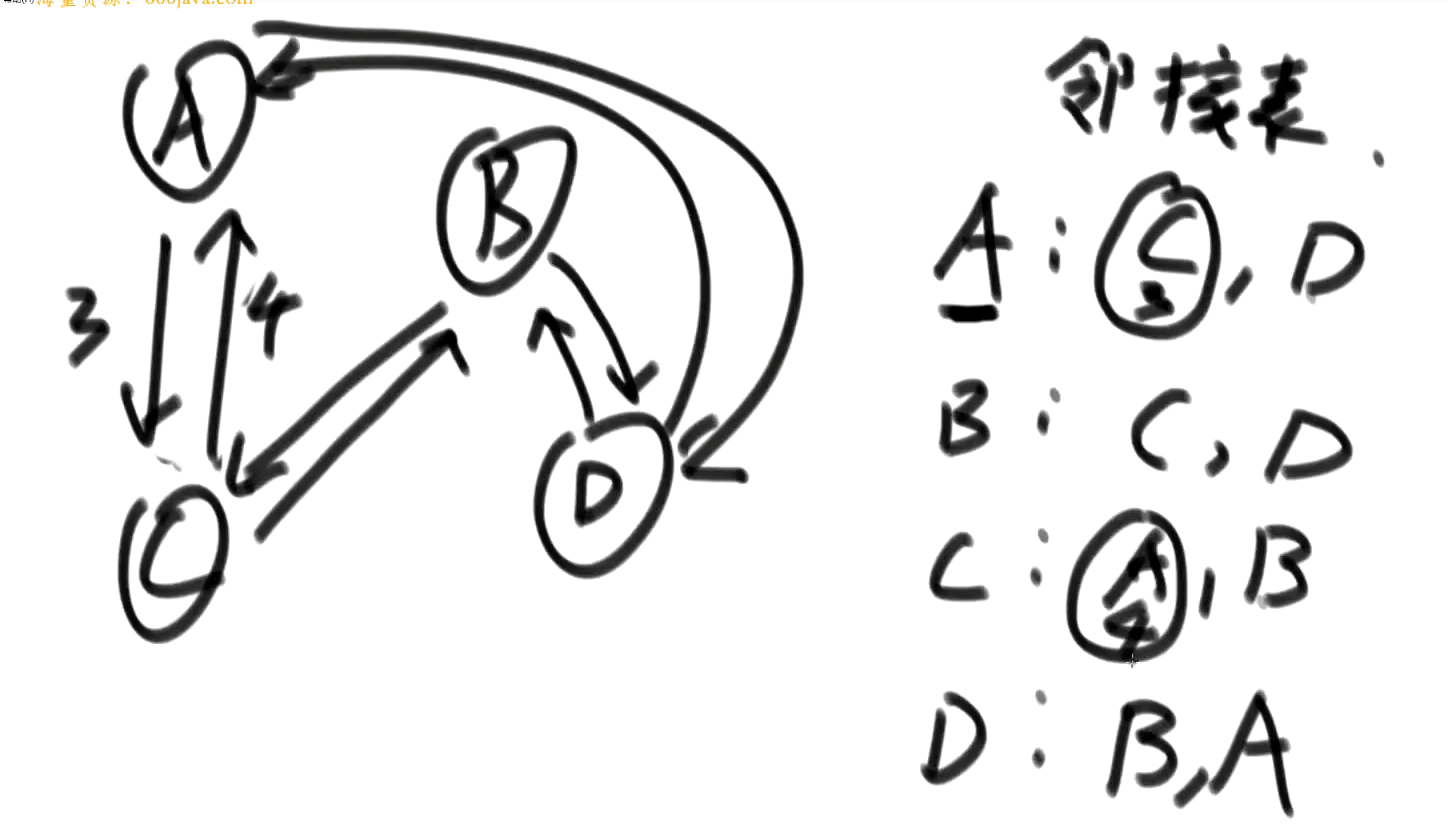 海量资源：666java.com
A
B
3
4
D
C
邻接表.
A: C, D
3
B: C, D
C: A, B
4
D: B, A